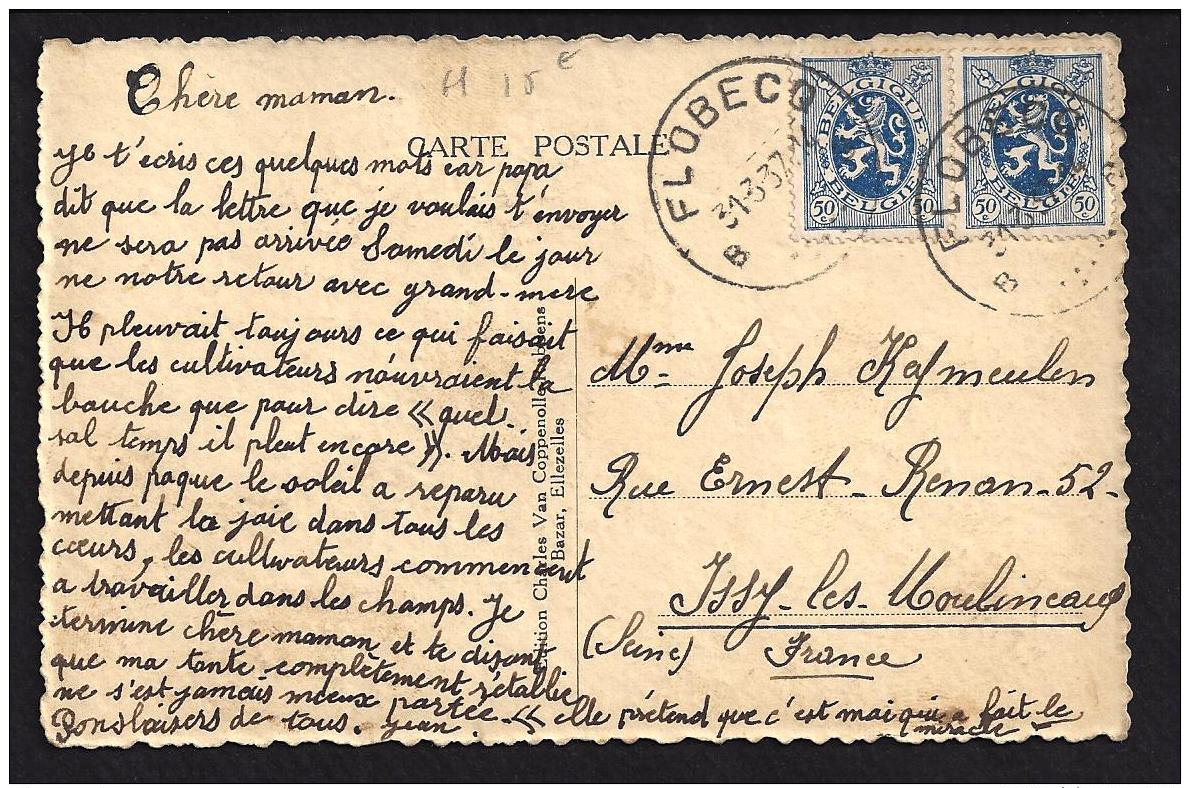 Chère maman.
H 15 €
CARTE POSTALE
Je t'écris ces quelques mots car papa
dit que la lettre que je voulais t'envoyer
ne sera pas arrivée Samedi le jour
ne notre retour avec grand-mere
Il pleuvait toujours ce qui faisait
que les cultivateurs n'ouvraient la
bouche que pour dire « quel
sal temps il pleut encore ». Mais
depuis paque le soleil a reparu
mettant la joie dans tous les
cœurs, les cultivateurs commencent
a travailler dans les champs. Je
termine chère maman et te disant
que ma tante complètement rétablie
ne s'est jamais mieux portée.
Bons baisers de tous. Jean. « elle prétend que c'est moi qui a fait le
miracle
Edition Charles Van Coppenolle
Bazar, Ellezelles
FLOBECQ
31-3-37
B
BELGIQUE
BELGIE
50 c
50 c
BELGIQUE
BELGIE
50 c
50 c
FLOBECQ
31
B
Mme Joseph Keymeulen
Rue Ernest-Renan-52-
Issy-les-Moulineaux
(Seine) France